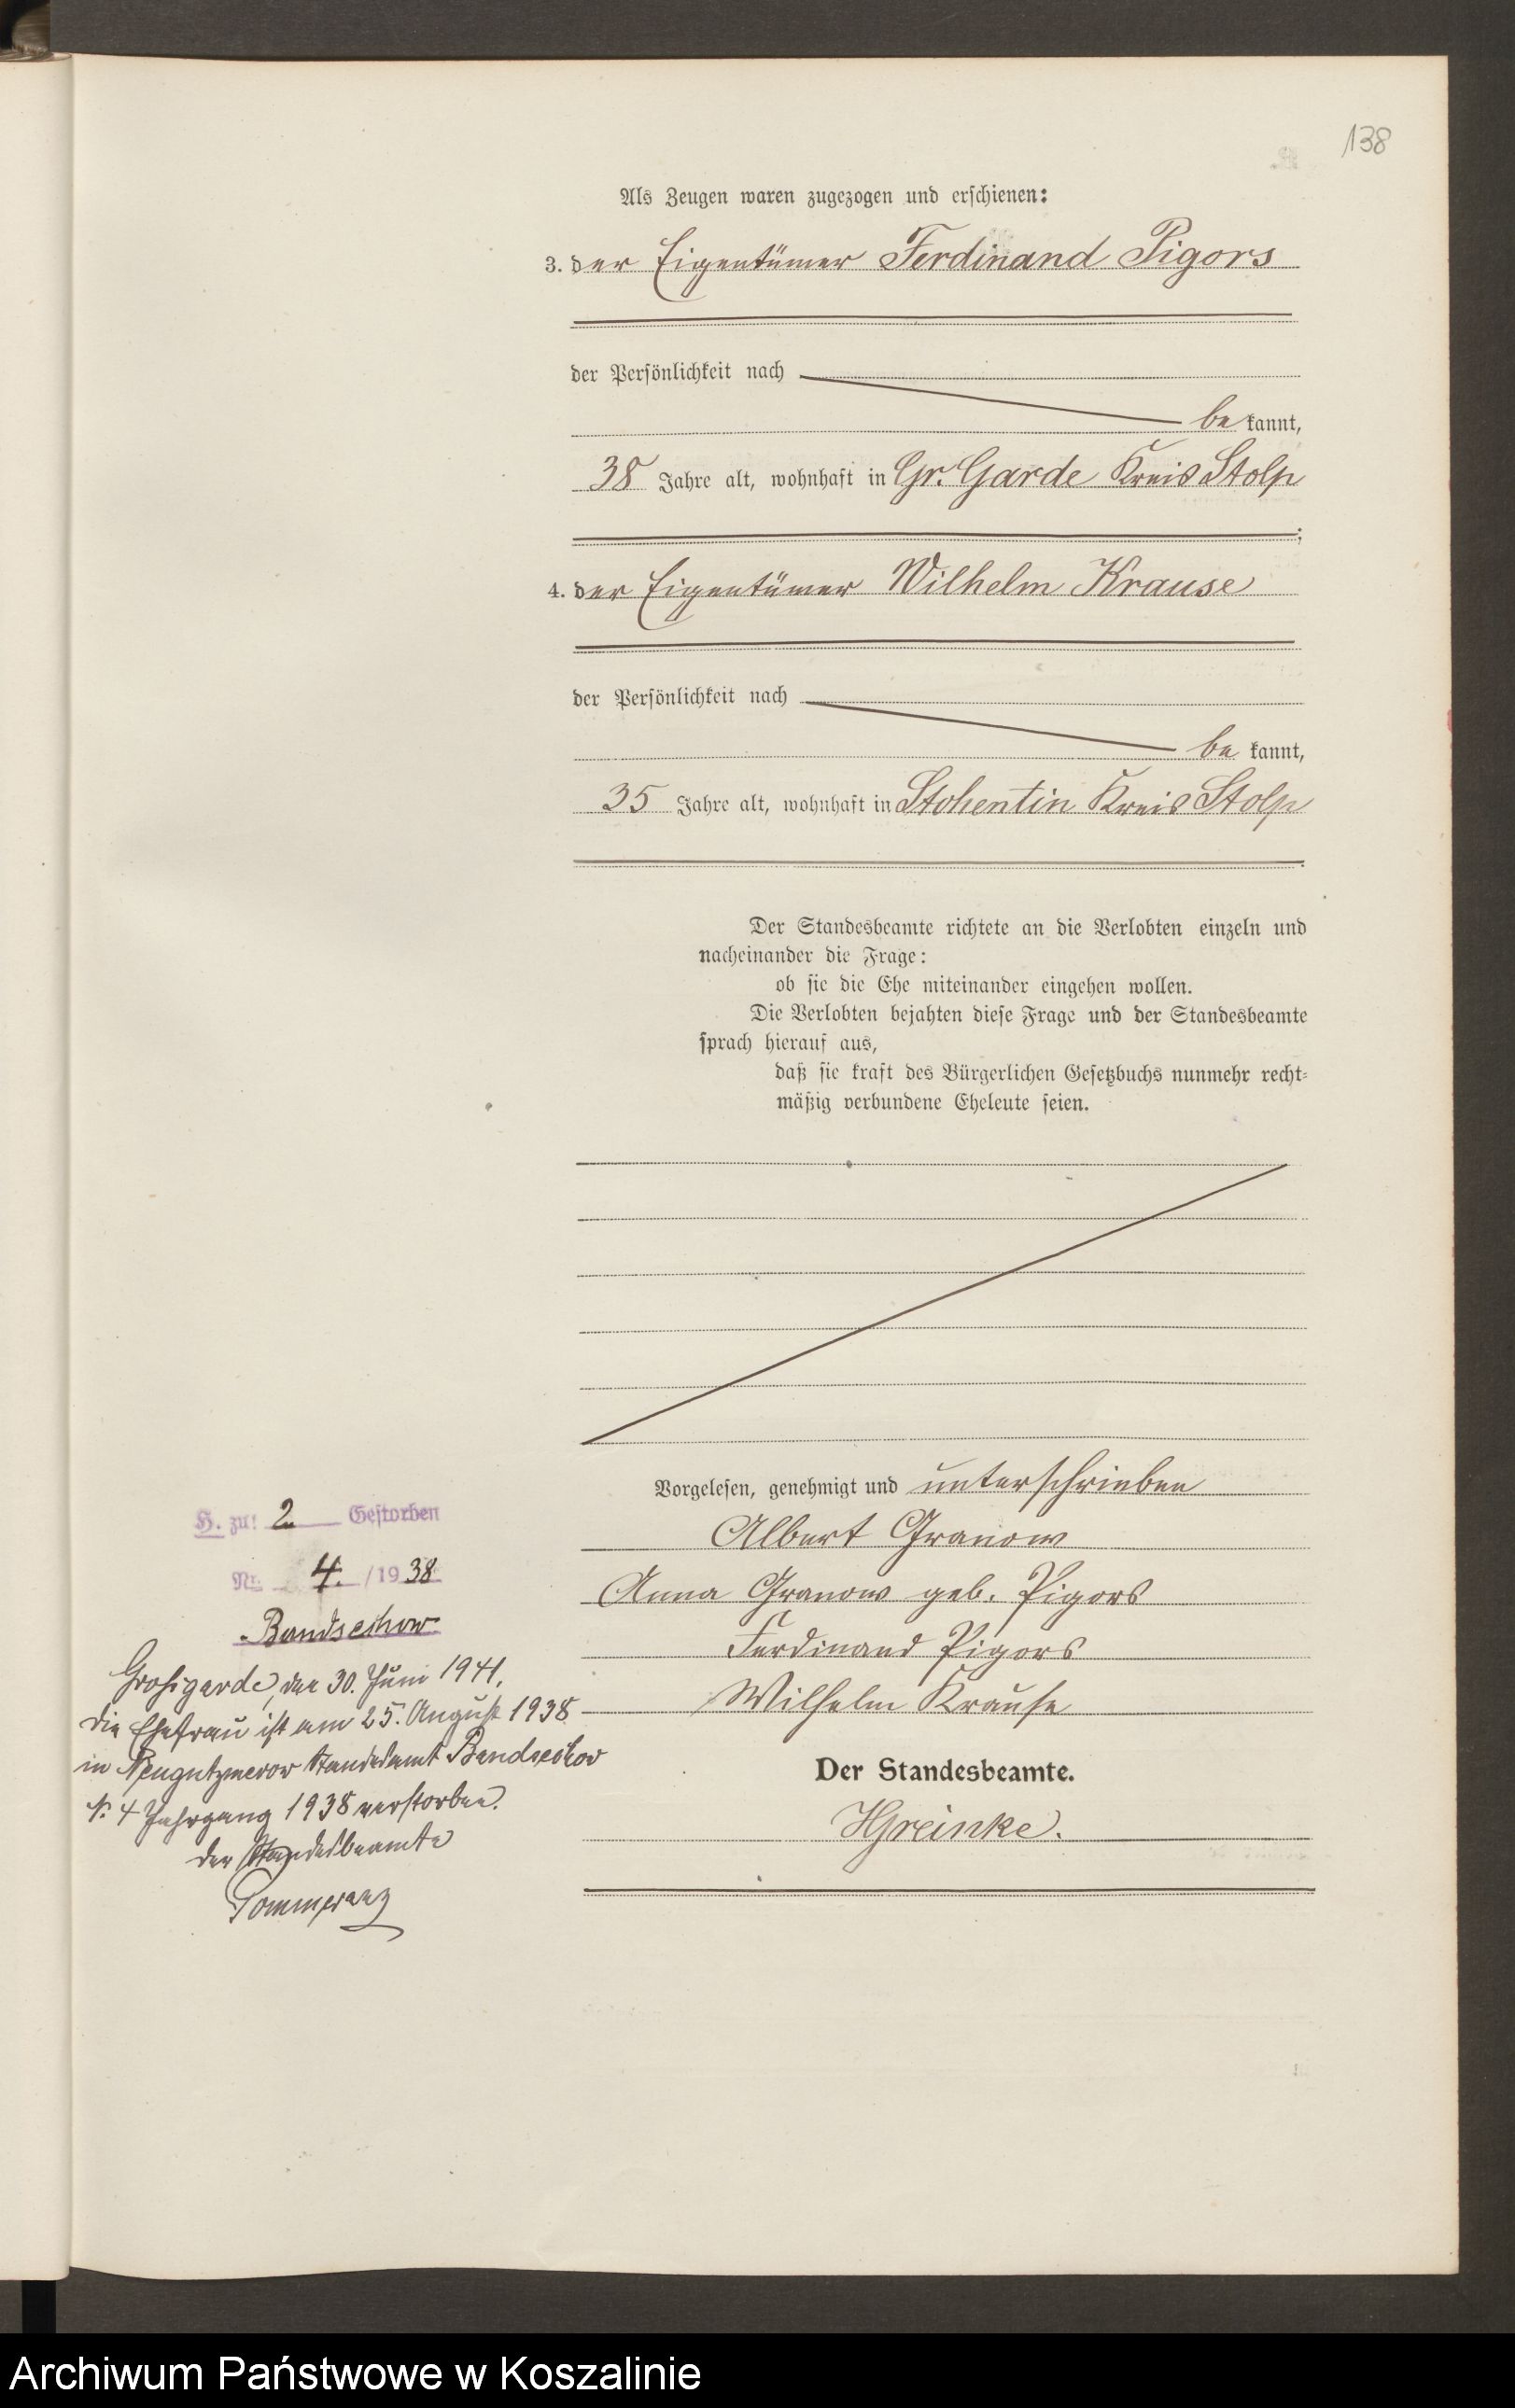 138
Als Zeugen waren zugezogen und erschienen:
3. der Eigentümer Ferdinand Pigors
der Persönlichkeit nach
be kannt,
38 Jahre alt, wohnhaft in Gr. Garde Kreis Stolp
;
4. der Eigentümer Wilhelm Krause
der Persönlichkeit nach
be kannt,
35 Jahre alt, wohnhaft in Stohentin Kreis Stolp
.
Der Standesbeamte richtete an die Verlobten einzeln und
nacheinander die Frage:
ob sie die Ehe miteinander eingehen wollen.
Die Verlobten bejahten diese Frage und der Standesbeamte
sprach hierauf aus,
daß sie kraft des Bürgerlichen Gesetzbuchs nunmehr recht-
mäßig verbundene Eheleute seien.
Vorgelesen, genehmigt und unterschrieben
Albert Granow
Anna Granow geb. Pigors
Ferdinand Pigors
Wilhelm Krause
Der Standesbeamte.
HGreinke.
H. zu: 2 Gestorben
Nr. 4. /1938
Bandsechow
Großgarde, den 30. Juni 1941.
Die Ehefrau ist am 25. August 1938
in Neugutzmerow Standesamt Bandsechow
N. 4 Jahrgang 1938 verstorben.
Der Standesbeamte
Pommeranz
Archiwum Państwowe w Koszalinie